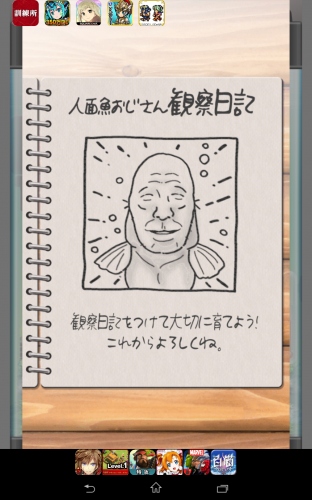 訓練所
人面魚おじさん観察日記
観察日記をつけて大切に育てよう!
これからよろしくね。
Level.1
MARVEL
白猫